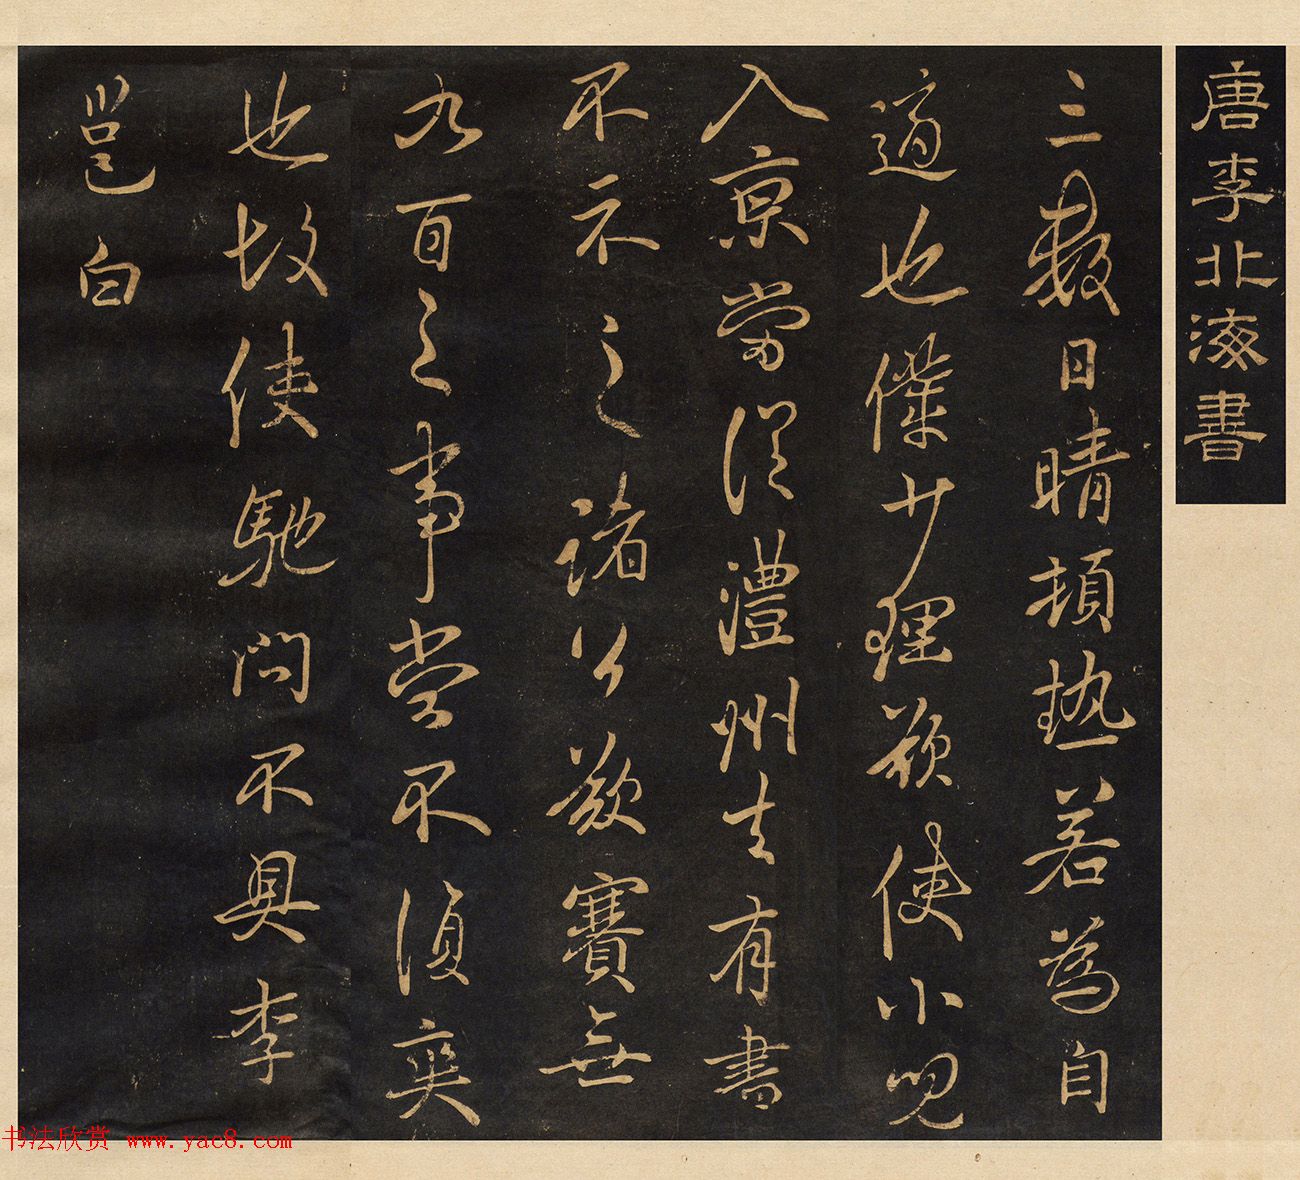 唐李北海書
三數日晴頓熱若為自
適也僕少理欲使小兒
入京當從澧州去有書
不示之諸公欲賽無
九百之事當不須爽
也故使馳問不具李
邕白
书法欣赏 www.yac8.com